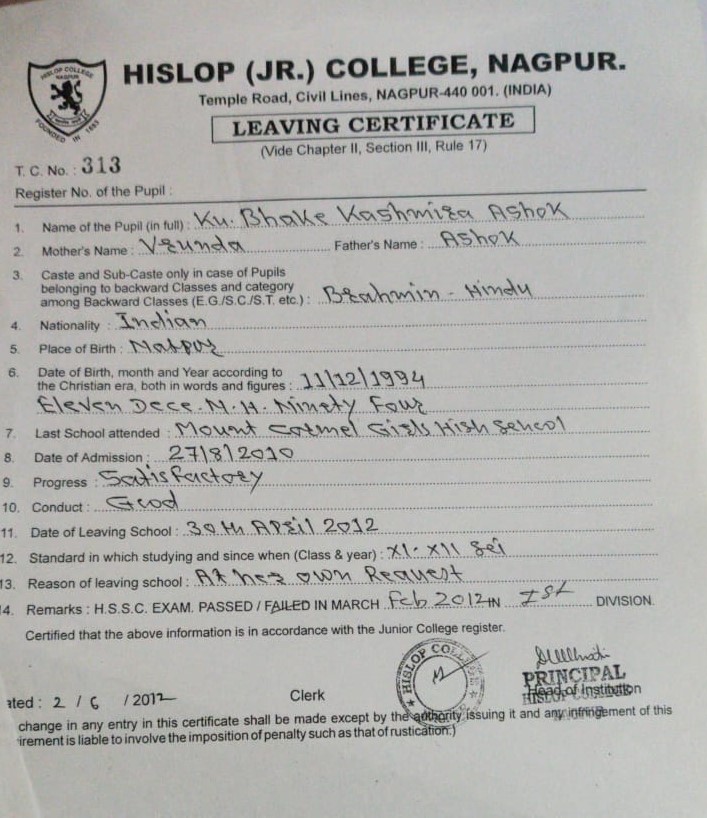 HISLOP COLLEGE
NAGPUR
FOUNDED IN 1883
HISLOP (JR.) COLLEGE, NAGPUR.
Temple Road, Civil Lines, NAGPUR-440 001. (INDIA)
LEAVING CERTIFICATE
(Vide Chapter II, Section III, Rule 17)
T. C. No. : 313
Register No. of the Pupil :
1. Name of the Pupil (in full) : Ku. Bhake Kashmira Ashok
2. Mother's Name : Vrunda Father's Name : Ashok
3. Caste and Sub-Caste only in case of Pupils
belonging to backward Classes and category
among Backward Classes (E.G./S.C./S.T. etc.) : Brahmin - Hindu
4. Nationality : Indian
5. Place of Birth : Natpur
6. Date of Birth, month and Year according to
the Christian era, both in words and figures : 11/12/1994
Eleven Dece. N. H. Ninety Four
7. Last School attended : Mount Carmel Girls High School
8. Date of Admission : 27/8/2010
9. Progress : Satisfactory
10. Conduct : Good
11. Date of Leaving School : 30th April 2012
12. Standard in which studying and since when (Class & year) : XI - XII Sci
13. Reason of leaving school : At her own Request
4. Remarks : H.S.S.C. EXAM. PASSED / FAILED IN MARCH Feb 2012 IN Ist DIVISION.
Certified that the above information is in accordance with the Junior College register.
HISLOP COLLEGE
PRINCIPAL
ated : 2 / 6 / 2012 Clerk Head of Institution
change in any entry in this certificate shall be made except by the authority issuing it and any infringement of this
irement is liable to involve the imposition of penalty such as that of rustication.)